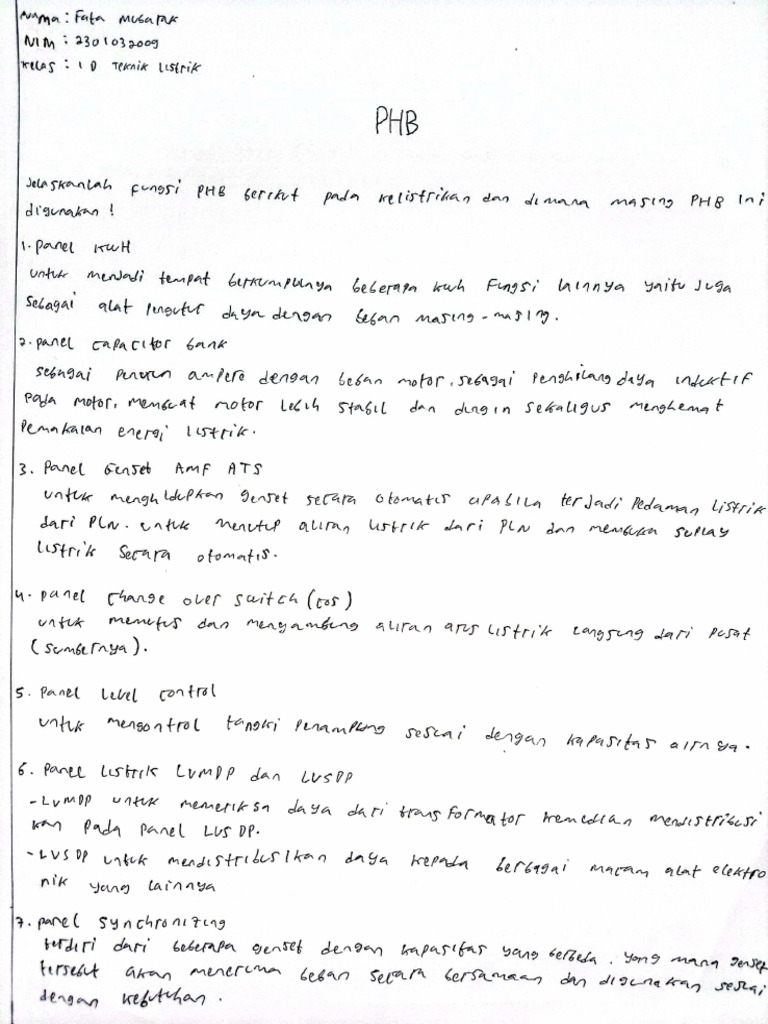 Nama : Fata Mubarak
NIM : 2301032009
Kelas : 1 D Teknik Listrik
PHB
Jelaskanlah fungsi PHB berikut pada kelistrikan dan dimana masing PHB ini
digunakan !
1. Panel KWH
untuk menjadi tempat berkumpulnya beberapa kwh Fungsi lainnya yaitu juga
sebagai alat pemutus daya dengan beban masing-masing.
2. panel capacitor bank
sebagai penurun ampere dengan beban motor, sebagai penghilang daya induktif
pada motor, membuat motor lebih stabil dan dingin sekaligus menghemat
Pemakaian energi listrik.
3. Panel Genset AMF ATS
untuk menghidupkan genset secara otomatis apabila terjadi Pedaman listrik
dari PLN. untuk menutup aliran listrik dari PLN dan membuka suplay
listrik secara otomatis.
4. panel Change over switch (cos)
untuk memutus dan menyambung aliran arus listrik langsung dari pusat
(sumbernya).
5. Panel level control
untuk mengontrol tangki penampung sesuai dengan kapasitas airnya.
6. Panel listrik LVMDP dan LVSDP
- LVMDP untuk memeriksa daya dari transformator kemudian mendistribusi
kan pada panel LVSDP.
- LVSDP untuk mendistribusikan daya kepada berbagai macam alat elektro
nik yang lainnya
7. panel synchronizing
terdiri dari beberapa genset dengan kapasitas yang berbeda. yang mana genset
tersebut akan menerima beban secara bersamaan dan digunakan sesuai
dengan kebutuhan.